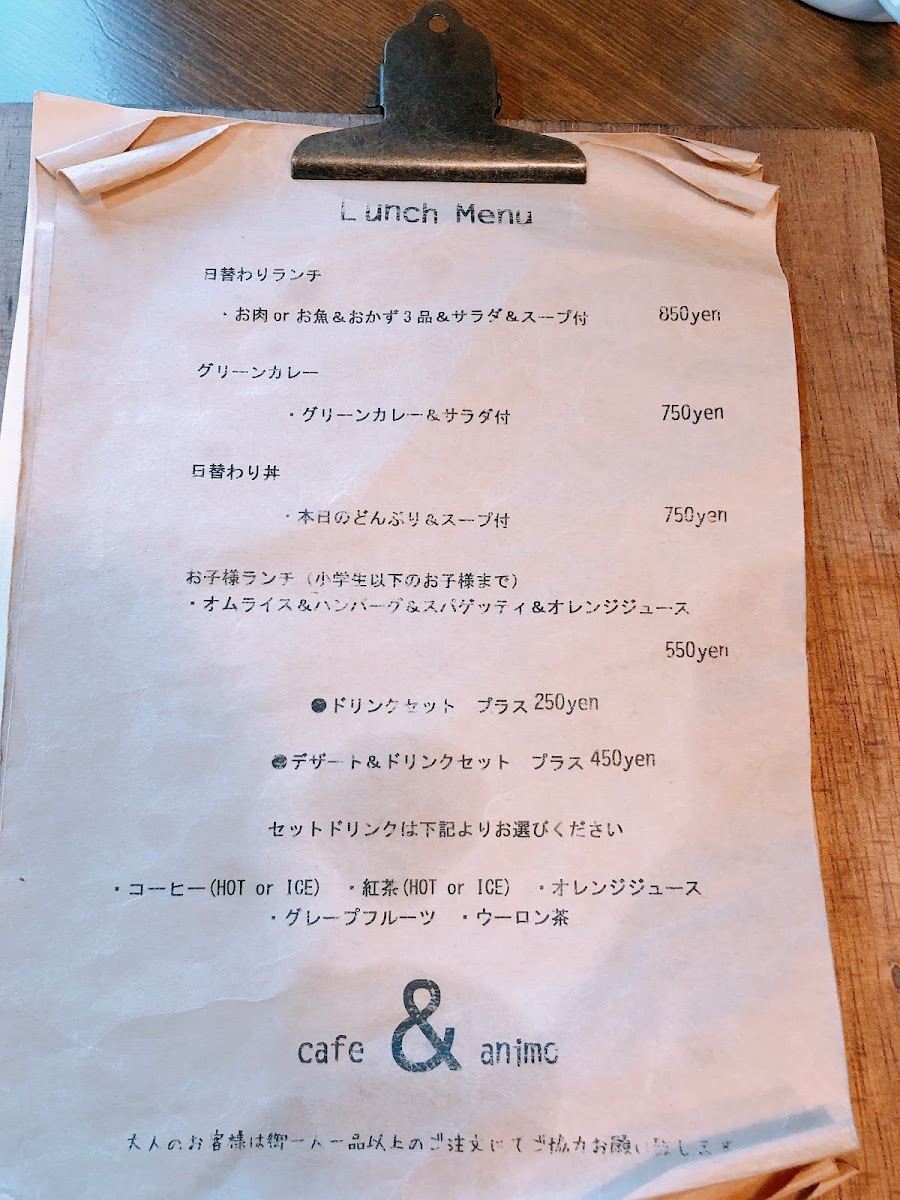 Lunch Menu
日替わりランチ
・お肉 or お魚&おかず3品&サラダ&スープ付 850yen
グリーンカレー
・グリーンカレー&サラダ付 750yen
日替わり丼
・本日のどんぶり&スープ付 750yen
お子様ランチ（小学生以下のお子様まで）
・オムライス&ハンバーグ&スパゲッティ&オレンジジュース
550yen
●ドリンクセット　プラス 250yen
●デザート&ドリンクセット　プラス 450yen
セットドリンクは下記よりお選びください
・コーヒー(HOT or ICE)　・紅茶(HOT or ICE)　・オレンジジュース
・グレープフルーツ　・ウーロン茶
cafe & animo
大人のお客様は御一人一品以上のご注文にてご協力お願い致します